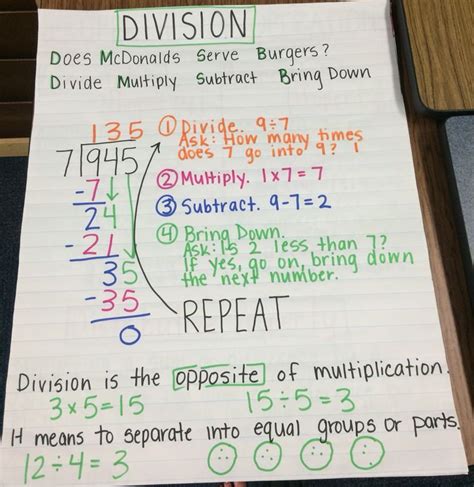 DIVISION
Does McDonalds Serve Burgers?
Divide Multiply Subtract Bring Down
135
7)945
-7
24
-21
35
-35
0
① Divide. 9÷7
Ask: How many times
does 7 go into 9? 1
② Multiply. 1x7=7
③ Subtract. 9-7=2
④ Bring Down.
Ask: Is 2 less than 7?
If yes, go on, bring down
the next number.
REPEAT
Division is the opposite of multiplication.
3×5=15 15÷5=3
It means to separate into equal groups or parts.
12÷4=3